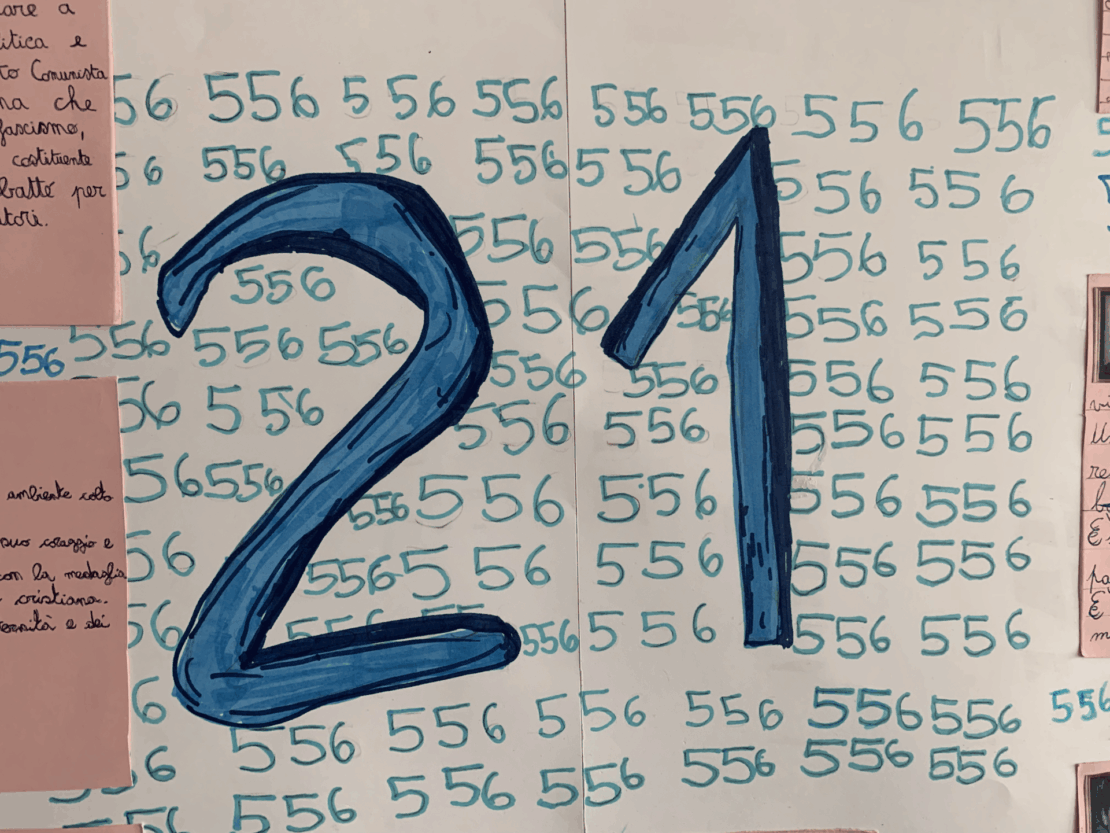 are a
itica e
to Comunista
na che
fascismo,
costituente
batté per
tori.
556
ambiente colto
suo coraggio e
con la medaglia
cristiana.
ernità e dei
21
56 556 556 556 556 556 556 556
56 556 556 556 556 556 556
6 556 556 556 556
556 556 556 556 556
556 556 556 556 556 556 556
56 556 556 556 556 556
56 556 556 556 556 556 556
56 556 556 556 556 556
56 556 556 556 556 556
6 556 556 556 556 556
6 556 556 556 556 556 556
6 556 556 556 556 556 556